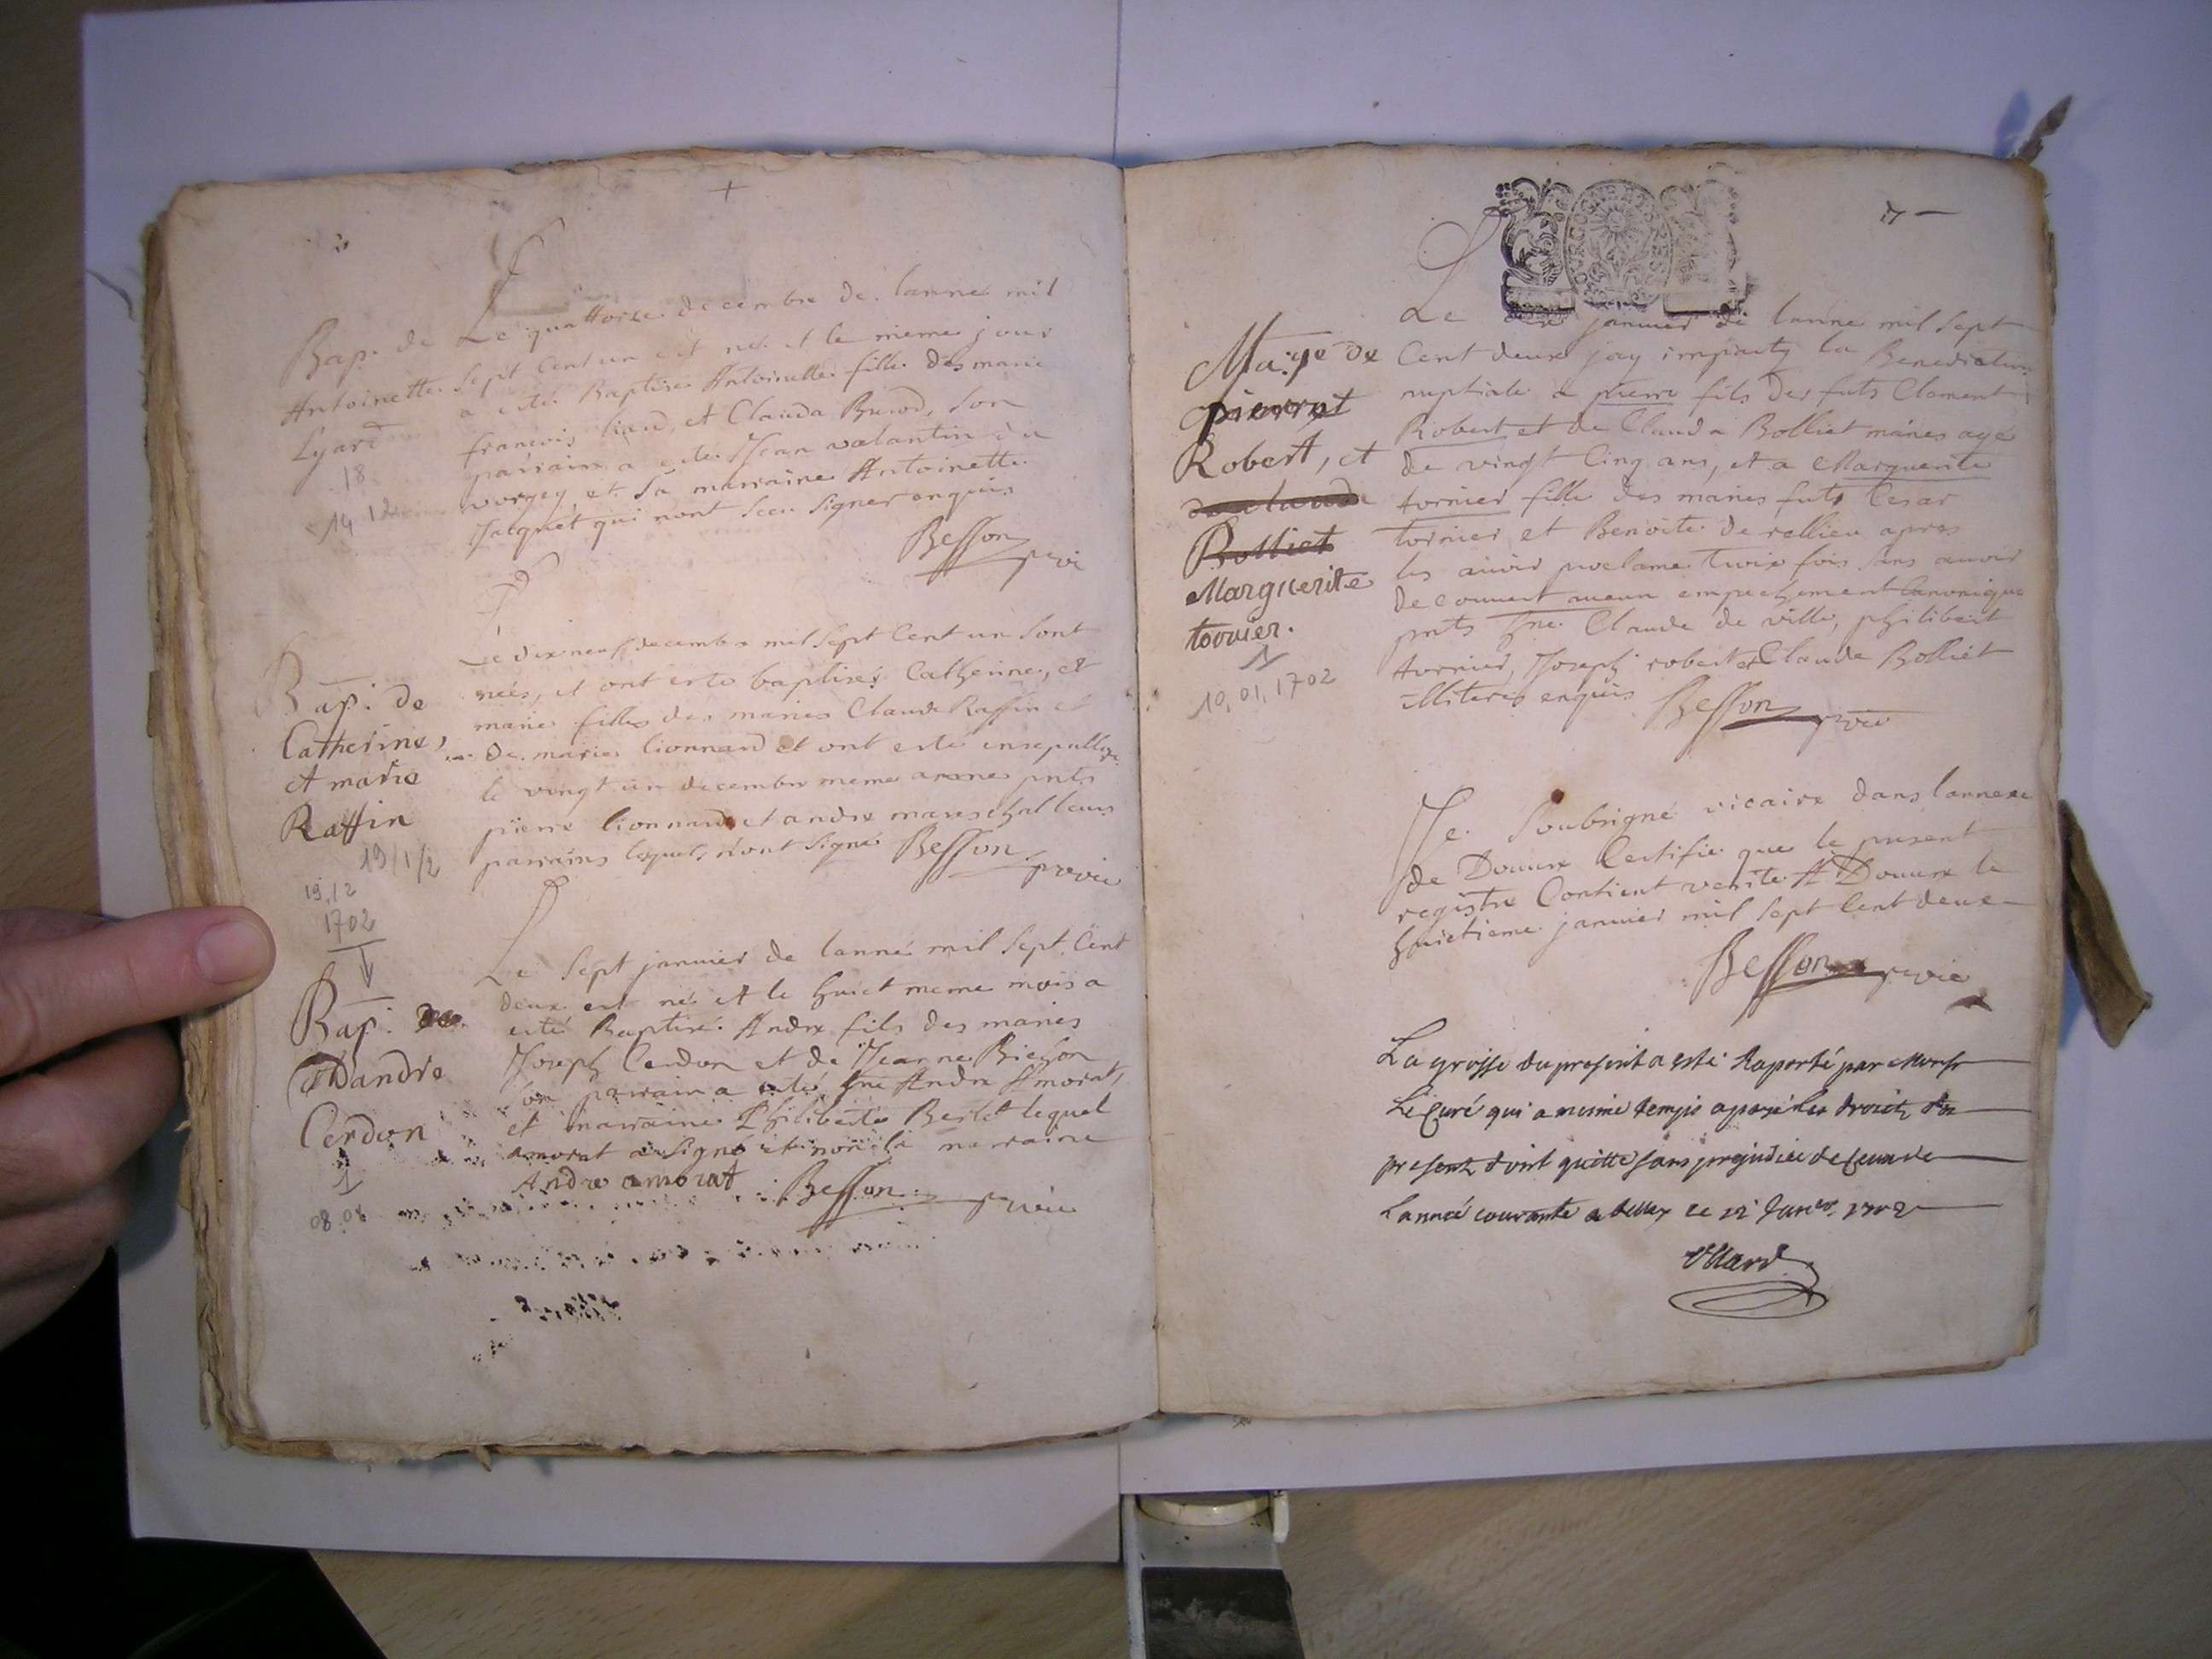 Bap. de
Antoinette
Lyard
18
14 12
Le quattorze decembre de lanné mil
sept cent un est né et le meme jour
a esté Baptisé Antoinette fille des mariés
francois liard, et Clauda Burod, son
parrain a esté Jean valantin du
vorgey et sa marraine Antoinette
Jaquet qui nont sceu signer enquis
Besson p vi
Bap. de
Catherine,
et marie
Raffin
19/1/2
19.12
1702
Le dix neuf decembre mil sept cent un sont
neés, et ont esté baptisés Catherine, et
marie filles des mariés Claude Raffin et
de marie lionnard et ont esté ensepulturé
le vingt un decembre meme anné pnts
pierre lionnard et andre mareschal leurs
parrains lequels nont signé Besson p vic
Bap.
Dandre
Cerdon
08.01
Le sept janvier de lanné mil sept Cent
deux est né et le huict meme mois a
esté Baptisé Andre fils des mariés
Joseph Cerdon et de Jeanne Bichon
son parrain a esté hne Andre Amorat,
et marraine Philiberte Berlet lequel
amorat a signé et non la marraine
Andre amorat Besson p vic
Mayé de
pierret
Robert, et
Bolliet
Marguerite
tornier.
10.01.1702
Le dix janvier de lanné mil sept
Cent deux jay imparty la Benediction
nuptiale a pierre fils des futs Clement
Robert et de Clauda Bolliet mariés agé
de vingt Cinq ans, et a Marguerite
tornier fille des mariés futs Cesar
tornier et Benoite de rellieu apres
les auoir proclamé trois fois sans auoir
decouuert aucun empechement Canonique
pnts hne Claude de ville, philibert
tornier, Joseph robert et Claude Bolliet
illiteres enquis Besson p vic
Je soubsigné vicaire dans lannexe
de Douure Certifie que le present
registre Contient verité A Douure le
huictieme janvier mil sept Cent deux
Besson p vic
La grosse du present a esté Raporté par Monsr
Le Curé qui a mesme temps a payé les droits du
present dont quitte sans prejudice de ceux de
Lannée courante a belley ce 12 Janer. 1702